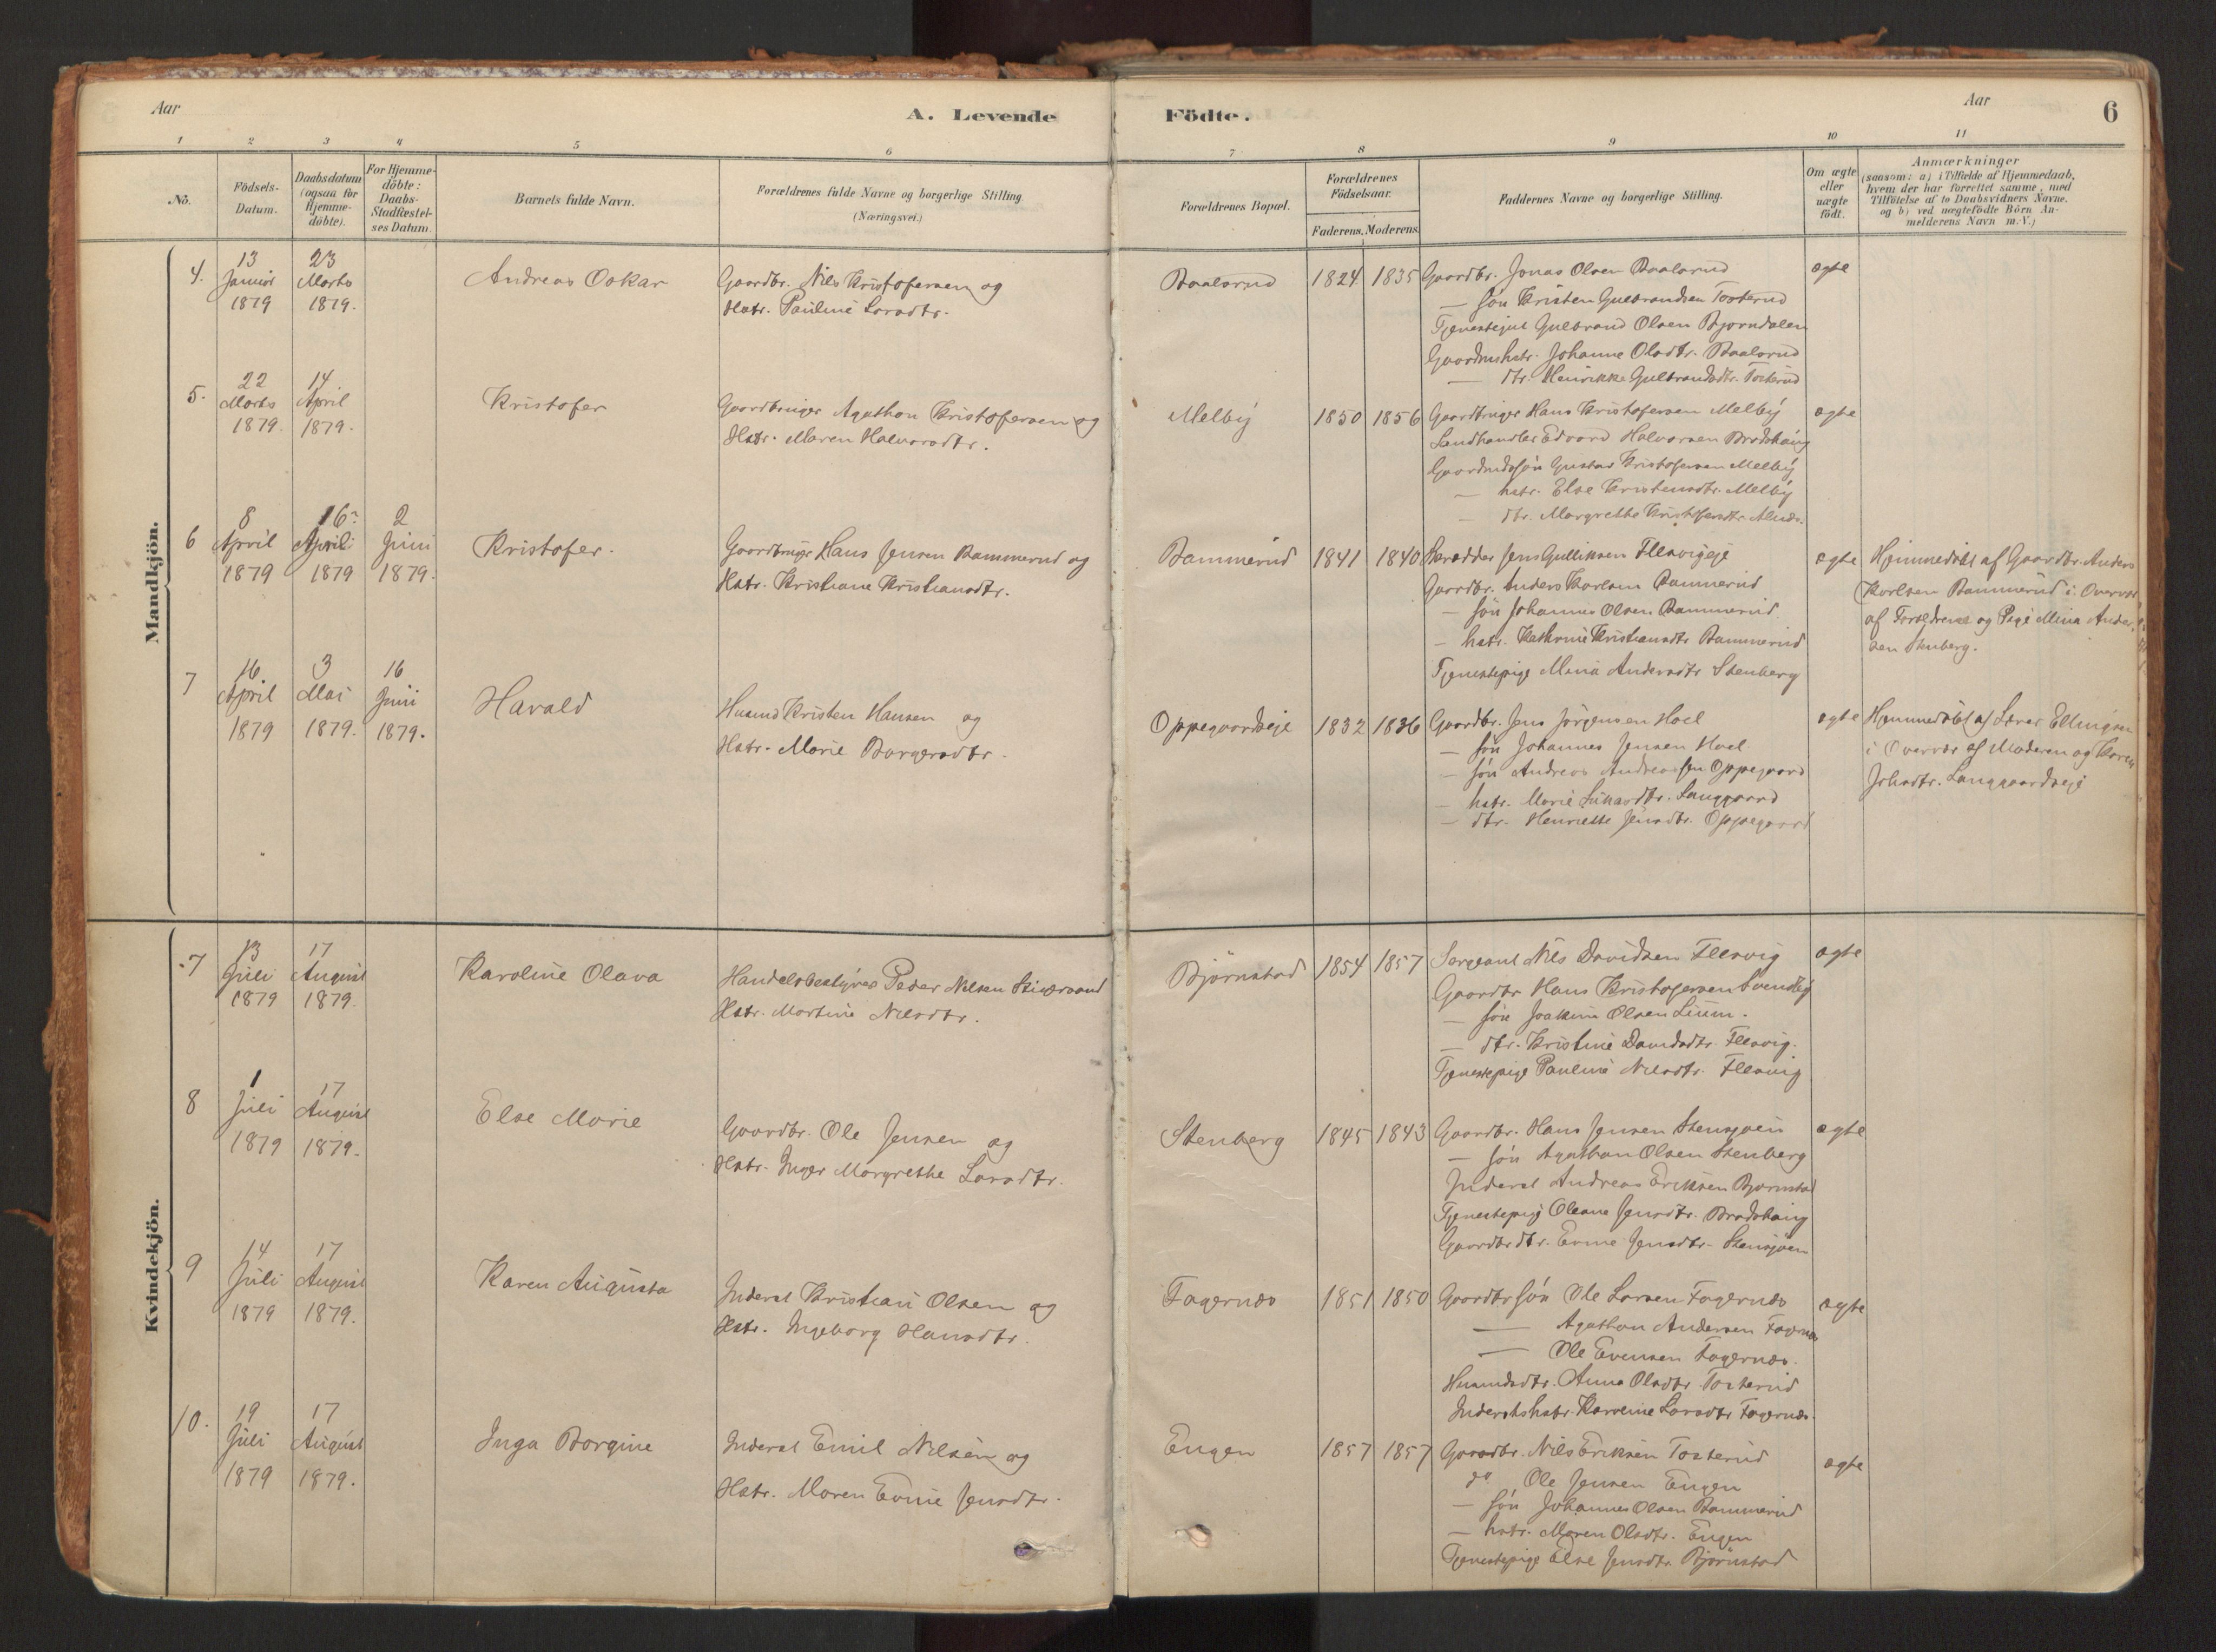 Aar
A. Levende Födte.
Aar
6
1 2 3 4 5 6 7 8 9 10 11
No.
Födsels-Datum.
Daabsdatum (ogsaa for Hjemme-döbte).
For Hjemme-döbte: Daabs-Stadfæstel-ses Datum.
Barnets fulde Navn.
Forældrenes fulde Navne og borgerlige Stilling
(Næringsvei.)
Forældrenes Bopæl.
Forældrenes Födselsaar.
Faderens. Moderens.
Faddernes Navne og borgerlige Stilling.
Om ægte eller uægte födt.
Anmærkninger
(saasom: a) i Tilfælde af Hjemmedaab,
hvem der har forrettet samme, med
Tilföielse af to Daabsvidners Navne.
og b) ved uægtefödte Börn An-
melderens Navn m. V.)
Mandkjön.
4. 13 Januar 1879
23 Marts 1879.
Andreas Oskar
Gaardbr. Nils Kristofersen og
Hstr. Pauline Larsdtr.
Baalsrud
1824 1835
Gaardbr. Jonas Olsen Baalsrud
— søn Kristen Gulbrandsen Tosterud
Tjenestegut Gulbrand Olsen Bjørndalen
Gaardmhstr. Johanne Olsdtr. Baalsrud
— dtr. Henrikke Gulbrandsdtr. Tosterud
ægte
5. 22 Marts 1879.
14 April 1879.
Kristofer
Gaardbruger Agathon Kristofersen og
Hstr. Maren Halvorsdtr.
Melby
1850 1856
Gaardbruger Hans Kristofersen Melby
Landhandler Edvard Halvorsen Brodshaug
Gaardmdssøn Gustav Kristofersen Melby
— hstr. Else Kristensdtr. Melby
— dtr. Margrethe Kristofersdtr.
ægte
6 8 April 1879
16 April 1879
2 Juni 1879.
Kristofer.
Gaardbruger Hans Jensen Bammerud og
Hstr. Kristiane Kristiansdtr.
Bammerud
1841 1840
Jens Gulliksen Flesvigeje
Gaardbr. Anders Karlsen Bammerud
— søn Johannes Olsen Bammerud
— hstr. Kathrine Kristiansdtr Bammerud
Tjenestepige Mina Andersdtr Stenberg
ægte
Hjemmedøbt af Gaardbr. Anders
Karlsen Bammerud i Overvær
af Forældrene og Pige Mina Ander-
sen Stenberg.
7 16 April 1879
3 Mai 1879.
16 Juni 1879.
Harald
Husmd Kristen Hansen og
Hstr. Marie Borgersdtr.
Oppegaardseje
1832 1836
Gaardbr. Jens Jørgensen Hoel
— søn Johannes Jensen Hoel
— søn Andreas Andreassen Oppegaard
— hstr. Marie Lukasdtr. Langgaard
— dtr. Henriette Jensdtr. Oppegaard
ægte
Hjemmedøbt af Lærer Ellingsen
i Overvær af Moderen og Karen
Johsdtr. Langgaardseje
Kvindekjön.
7 13 Juli 1879
17 August 1879.
Karoline Olava
Handelsbestyrer Peder Nilsen
Hstr. Martine Nilsdtr.
Bjørnstad
1854 1857
Sergeant Nils Davidsen Flesvig
Gaardbr Hans Kristofersen
— søn Joakim Olsen Lium.
— dtr. Kristine Davidsdtr. Flesvig.
Tjenestepige Pauline Nilsdtr. Flesvig
ægte
8 1 Juli 1879
17 August 1879.
Else Marie
Gaardbr. Ole Jensen og
Hstr. Inger Margrethe Larsdtr.
Stenberg
1845 1843
Gaardbr. Hans Jensen Stensjøen
— søn Agathon Olsen Stenberg
Inderst Andreas Eriksen Bjørnstad
Tjenestepig Oleane Jensdtr. Brodshaug
Gaardbrdtr. Evine Jensdtr. Stensjøen
ægte
9 14 Juli 1879
17 August 1879.
Karen Augusta
Inderst Kristian Olsen og
Hstr. Ingeborg Hansdtr.
Fagernæs
1851 1850
Gaardbrsøn Ole Larsen Fagernæs
— Agathon Andersen Fagernæs
— Ole Evensen Fagernæs.
Husmdsdtr. Anna Olsdtr Tosterud
Indersthstr. Karoline Larsdtr Fagernæs.
ægte
10. 19 Juli 1879
17 August 1879.
Inga Borgine
Inderst Emil Nilsen og
Hstr. Maren Evine Jensdtr.
Engen
1857 1857
Gaardbr. Nils Eriksen Tosterud
do Ole Jensen Engen
— søn Johannes Olsen Bammerud
— hstr. Maren Olsdtr. Engen
Tjenestepige Else Jensdtr Bjørnstad
ægte